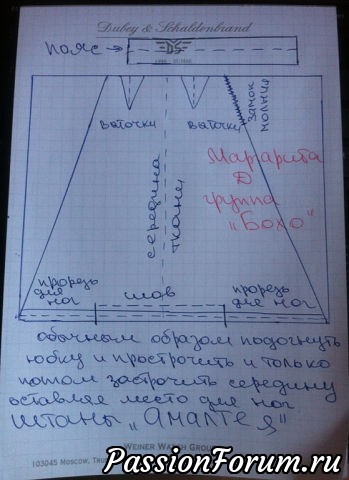 Dubey & Schaldenbrand
пояс →
ваточки ваточки
замок молния
середина ткани
Маргарита
Д
группа
„Бохо"
прорезь для ног
шов
прорезь для ног
обычным образом подогнуть
юбку и прострочить и только
потом застрочить середину
оставляя место для ног
штаны „Амалтея"
WEINER WATCH GROUP
103045 Moscow, Tru
PassionForum.ru